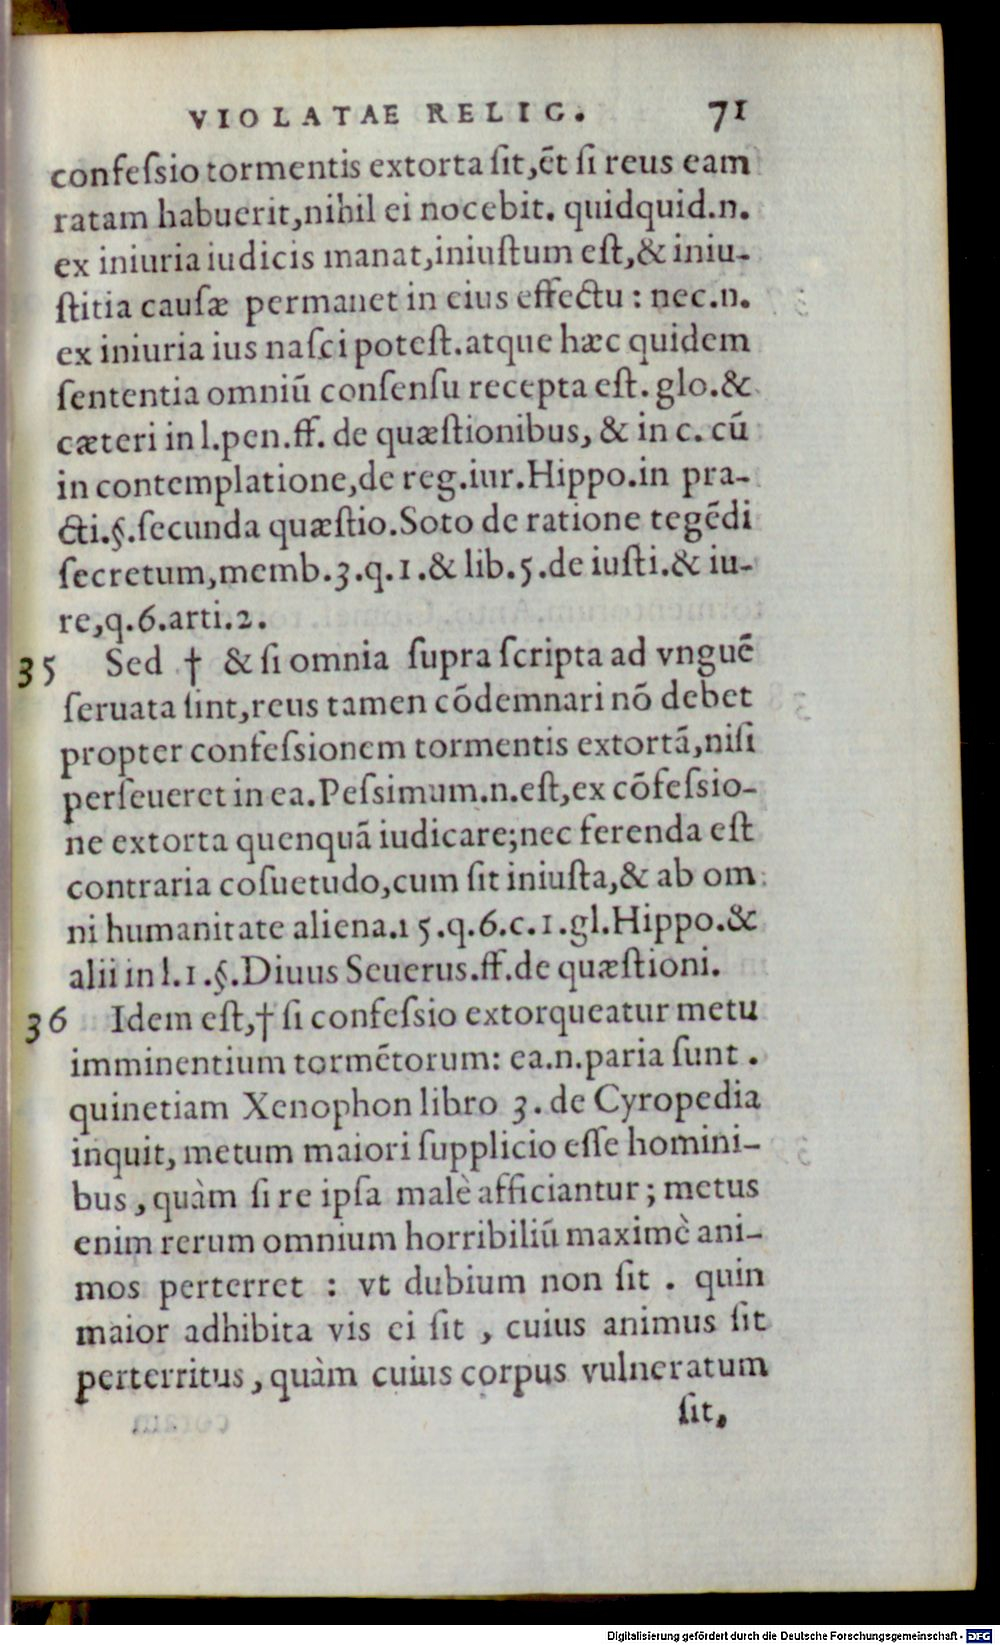 VIOLATAE RELIG. 71
confeſsio tormentis extorta ſit,ēt ſi reus eam
ratam habuerit,nihil ei nocebit. quidquid.n.
ex iniuria iudicis manat,iniuſtum eſt,& iniu-
ſtitia cauſæ permanet in eius effectu : nec.n.
ex iniuria ius naſci poteſt.atque hæc quidem
ſententia omniū conſenſu recepta eſt. glo.&
cæteri in l.pen.ff. de quæſtionibus, & in c. cū
in contemplatione,de reg.iur.Hippo.in pra-
cti.§.ſecunda quæſtio.Soto de ratione tegēdi
ſecretum,memb.3.q.1.& lib.5.de iuſti.& iu-
re,q.6.arti.2.
35 Sed † & ſi omnia ſupra ſcripta ad vnguē
ſeruata ſint,reus tamen cōdemnari nō debet
propter confeſsionem tormentis extortā,niſi
perſeueret in ea.Peſsimum.n.eſt,ex cōfeſsio-
ne extorta quenquā iudicare;nec ferenda eſt
contraria coſuetudo,cum ſit iniuſta,& ab om
ni humanitate aliena.15.q.6.c.1.gl.Hippo.&
alii in l.1.§.Diuus Seuerus.ff.de quæſtioni.
36 Idem eſt,† ſi confeſsio extorqueatur metu
imminentium tormētorum: ea.n.paria ſunt .
quinetiam Xenophon libro 3. de Cyropedia
inquit, metum maiori ſupplicio eſſe homini-
bus , quàm ſi re ipſa malè afficiantur ; metus
enim rerum omnium horribiliū maximè ani-
mos perterret : vt dubium non ſit . quin
maior adhibita vis ei ſit , cuius animus ſit
perterritus , quàm cuius corpus vulneratum
ſit.
Digitalisierung gefördert durch die Deutsche Forschungsgemeinschaft - DFG